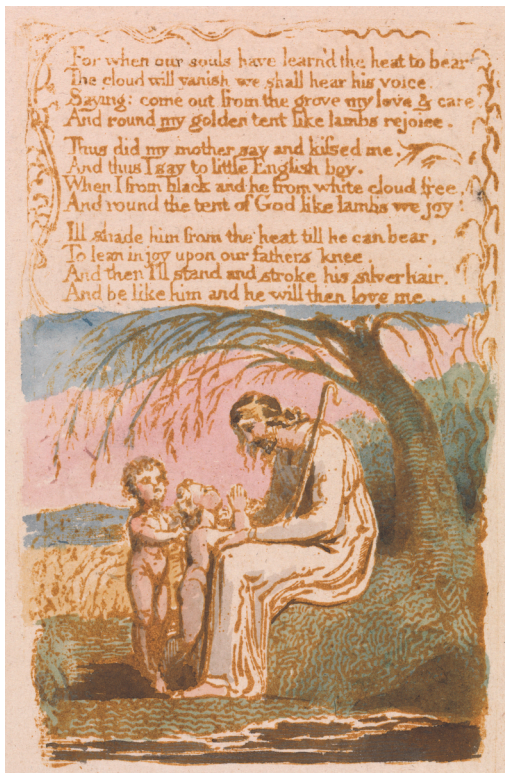 For when our souls have learn'd the heat to bear
The cloud will vanish we shall hear his voice.
Saying: come out from the grove my love & care
And round my golden tent like lambs rejoice.
Thus did my mother say and kissed me.
And thus I say to little English boy.
When I from black and he from white cloud free,
And round the tent of God like lambs we joy:
Ill shade him from the heat till he can bear,
To lean in joy upon our fathers knee
And then I'll stand and stroke his silver hair.
And be like him and he will then love me.